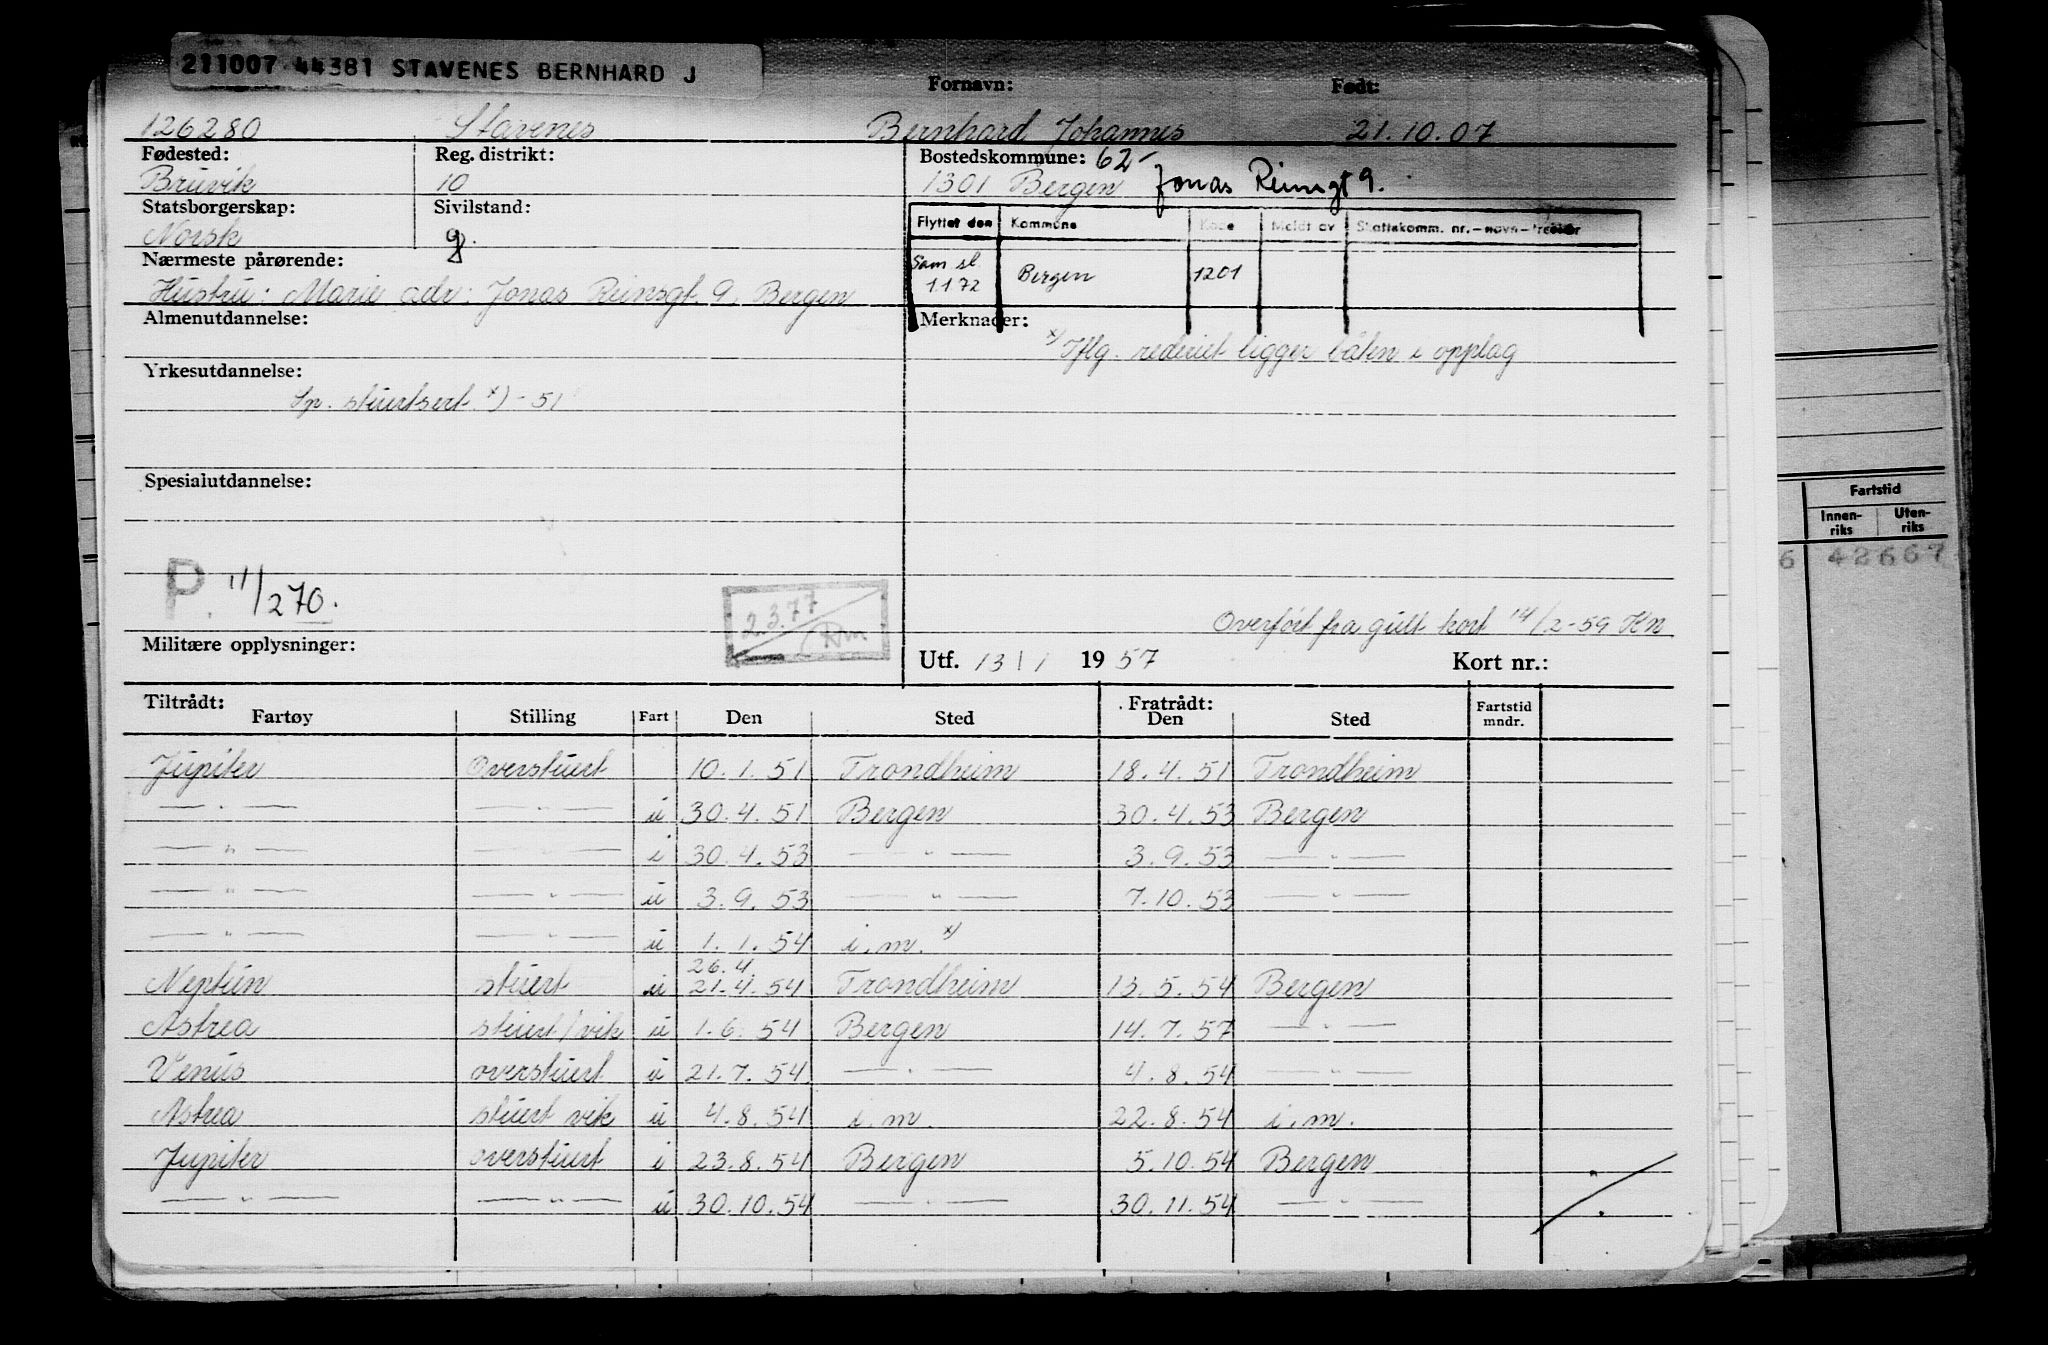 211007 44381 STAVENES BERNHARD J
Fornavn: Født:
126280 Stavenes Bernhard Johannes 21.10.07
Fødested: Reg. distrikt: Bostedskommune: 62-
Bruvik 10 1301 Bergen Jonas Reinsgt 9.
Statsborgerskap: Sivilstand:
Norsk g.
Flyttet den Kommune Kode Meldt av Skattekomm. nr. - navn -
Sam sl. 1 1 72 Bergen 1201
Nærmeste pårørende:
Hustru: Marie adr: Jonas Reinsgt. 9, Bergen
Almenutdannelse: Merknader:
x) Iflg. rederiet ligger båten i opplag
Yrkesutdannelse:
Sp. stuertsert. x) - 51
Spesialutdannelse:
P. 11/270.
2.3.77
Overført fra gült kort 14/2-59 Hn
Militære opplysninger: Utf. 13/1 1957 Kort nr.:
Tiltrådt: Fratrådt:
Fartøy Stilling Fart Den Sted Den Sted Fartstid mndr.
Jupiter Overstuert 10.1.51 Trondheim 18.4.51 Trondheim
— " — — " — ü 30.4.51 Bergen 30.4.53 Bergen
— " — — " — i 30.4.53 — " — 3.9.53 — " —
— " — — " — ü 3.9.53 — " — 7.10.53 — " —
— " — — " — ü 1.1.54 i.m. x)
26.4.
Neptün stüert ü 21.4.54 Trondheim 13.5.54 Bergen
Astrea stüert/vik ü 1.6.54 Bergen 14.7.57 — " —
Venüs overstüert ü 21.7.54 — " — 4.8.54 — " —
Astrea stüert vik ü 4.8.54 i.m. 22.8.54 i.m.
Jupiter overstüert i 23.8.54 Bergen 5.10.54 Bergen
— " — — " — ü 30.10.54 — " — 30.11.54 — " —
Fartstid
Innen-riks Uten-riks
6 42607